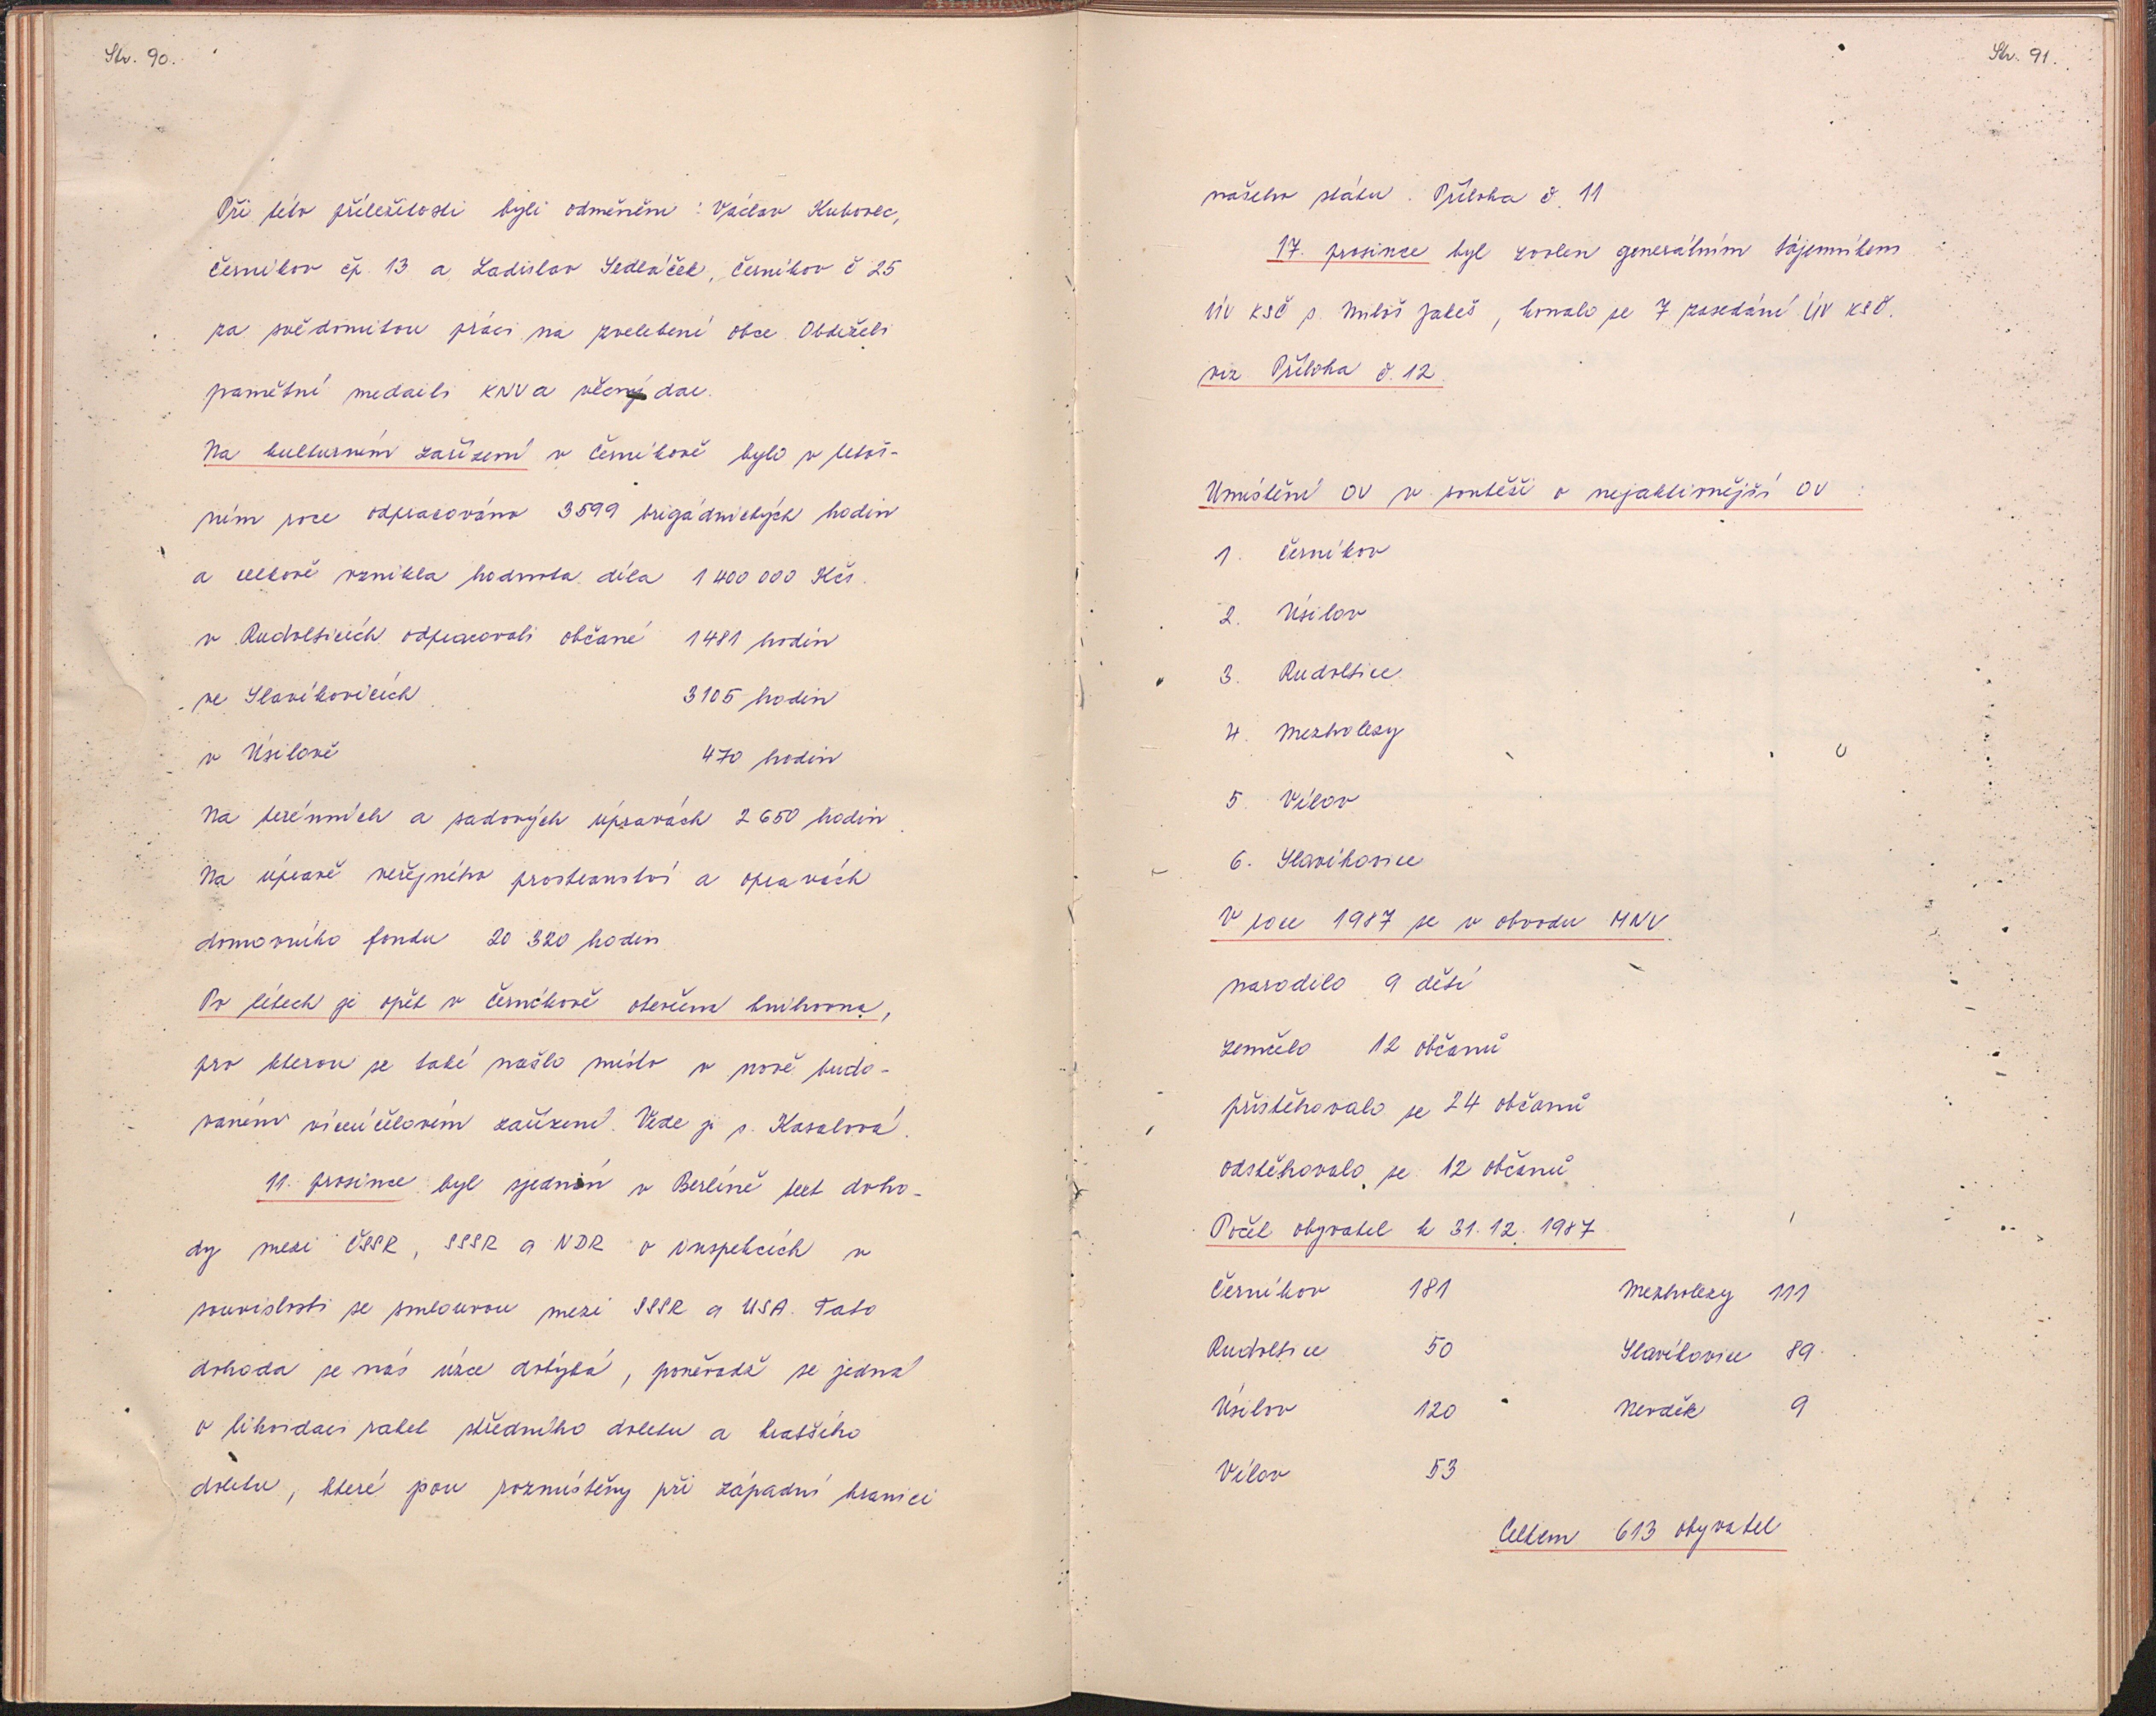 Str. 90.
Při této příležitosti byli odměněni : Václav Kuborec,
Černíkov čp. 13 a Ladislav Sedláček, Černíkov č 25
za svědomitou práci na zvelebení obce. Obdrželi
pamětní medaili KNV a věcný dar.
Na kulturním zařízení v Černíkově bylo v letoš-
ním roce odpracováno 3599 brigádnických hodin
a celkově vznikla hodnota díla 1 400 000 Kčs.
v Rudolticích odpracovali občané 1481 hodin
ve Slavíkovicích 3105 hodin
v Úsilově 470 hodin
Na terénních a sadových úpravách 2 650 hodin
Na úpravě veřejného prostranství a opravách
domovního fondu 20 320 hodin
Po létech je opět v Černíkově otevřena knihovna,
pro kterou se také našlo místo v nově budo-
vaném víceúčelovém zařízení. Vede ji s. Kasalová.
11. prosince byl sjednán v Berlíně text doho-
dy mezi ČSSR, SSSR a NDR o inspekcích v
souvislosti se smlouvou mezi SSSR a USA. Tato
dohoda se nás úzce dotýká, poněvadž se jedná
o likvidaci raket středního doletu a kratšího
doletu, které jsou rozmístěny při západní hranici
Str. 91.
našeho státu. Příloha č. 11
17. prosince byl zvolen generálním tájemníkem
ÚV KSČ s. Miloš Jakeš, konalo se 7 zasedání ÚV KSČ.
viz Příloha č. 12.
Umístění OV v soutěži o nejaktivnější OV :
1. Černíkov
2. Úsilov
3. Rudoltice
4. Mezholezy
5. Vílov
6. Slavíkovice
V roce 1987 se v obvodu MNV
narodilo 9 dětí
zemřelo 12 občanů
přistěhovalo se 24 občanů
odstěhovalo se 12 občanů
Počet obyvatel k 31. 12. 1987
Černíkov 181 Mezholezy 111
Rudoltice 50 Slavíkovice 89
Úsilov 120 Nevděk 9
Vílov 53
Celkem 613 obyvatel